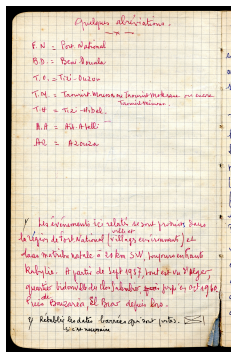 Quelques abréviations.
F.N = Fort National
B.D = Beni Douala
T.O. = Tizi-Ouzou
T.M. = Taourirt Moussa ou Taourirt Mokrane ou encore
Taourirt Mimoun
T.H = Tizi-Hibel
A.A = Aït-Abelli
AZ = Azouza
1) Les événements ici relatés se sont produits dans
ville et
la région de Fort National (villages environnants) et
dans ma tribu natale à 20 km S.W toujours en haute
Kabylie. A partir de Sept 1957, tout est vu d'Alger,
quartier bidonville du Clos Salembier jusqu'en oct 1960, de
Bouzaréa, El Biar depuis lors.
2) Rétablir les dates barrées qui sont justes.
si c'est nécessaire